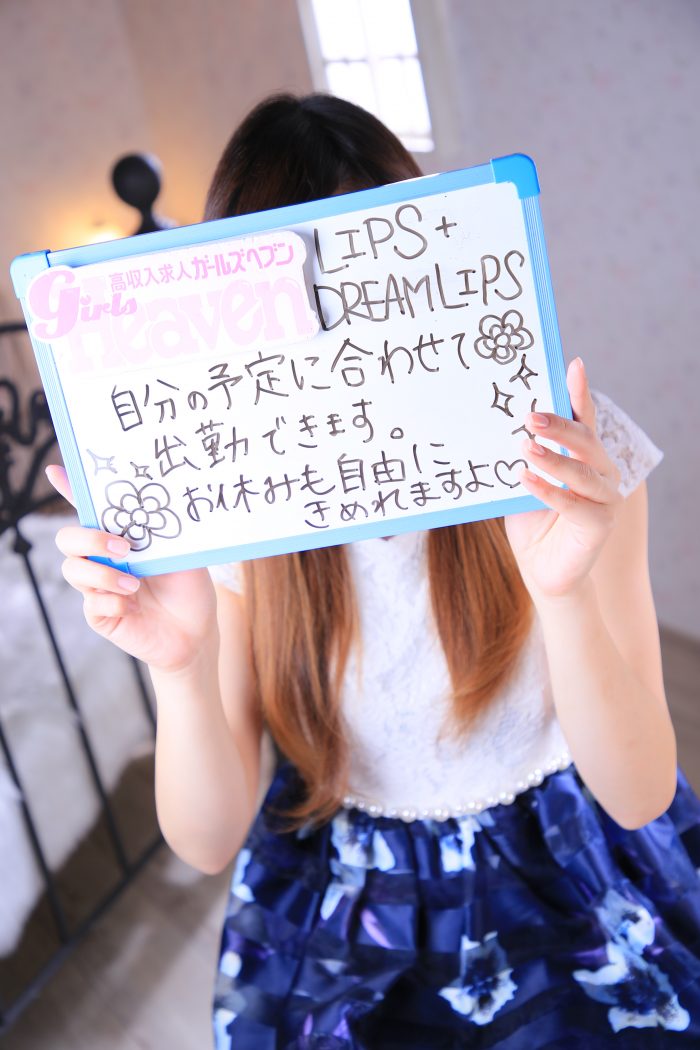 高収入求人 ガールズヘブン
Girls
Heaven
LIPS+
DREAMLIPS
自分の予定に合わせて
出勤できます。
お休みも自由に
きめれますよ♡